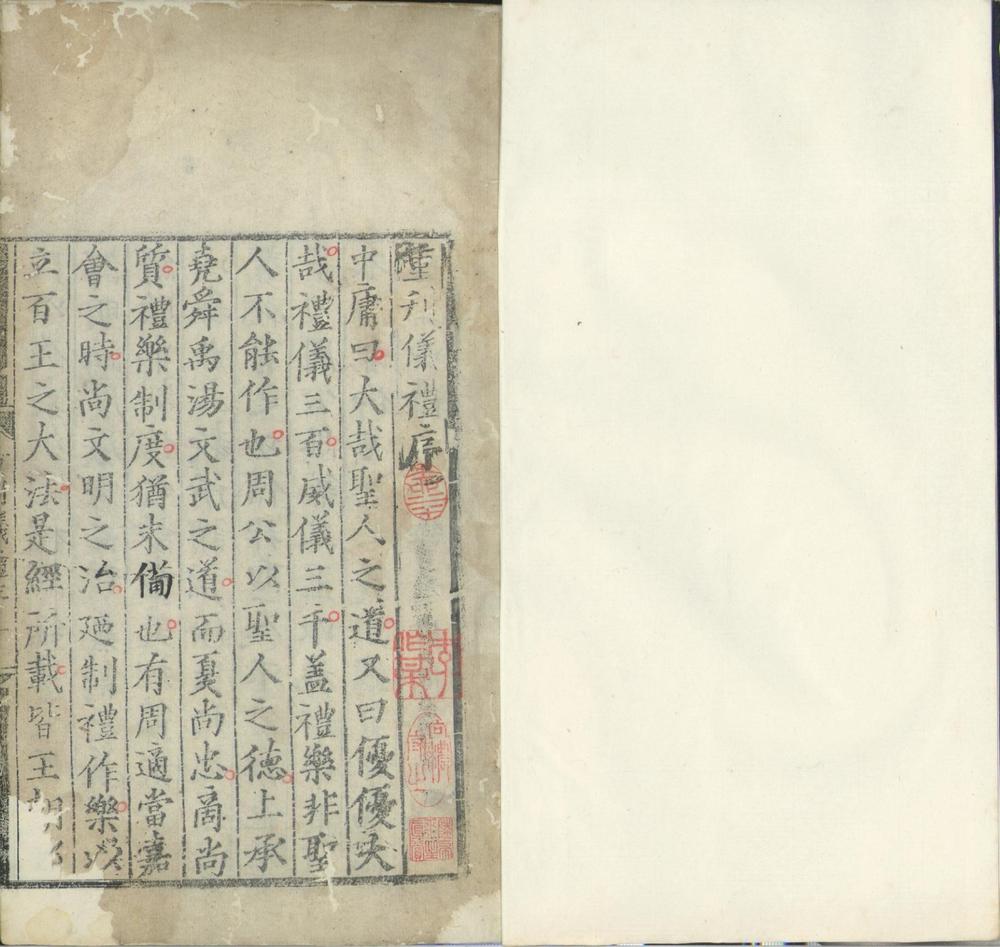 重刋儀禮序
中庸曰大哉聖人之道又曰優優大
哉禮儀三百威儀三千盖禮樂非聖
人不能作也周公以聖人之德上承
堯舜禹湯文武之道而夏尚忠商尚
質禮樂制度猶未備也有周適當嘉
會之時尚文明之治廼制禮作樂以
立百王之大法是經所載皆王朝